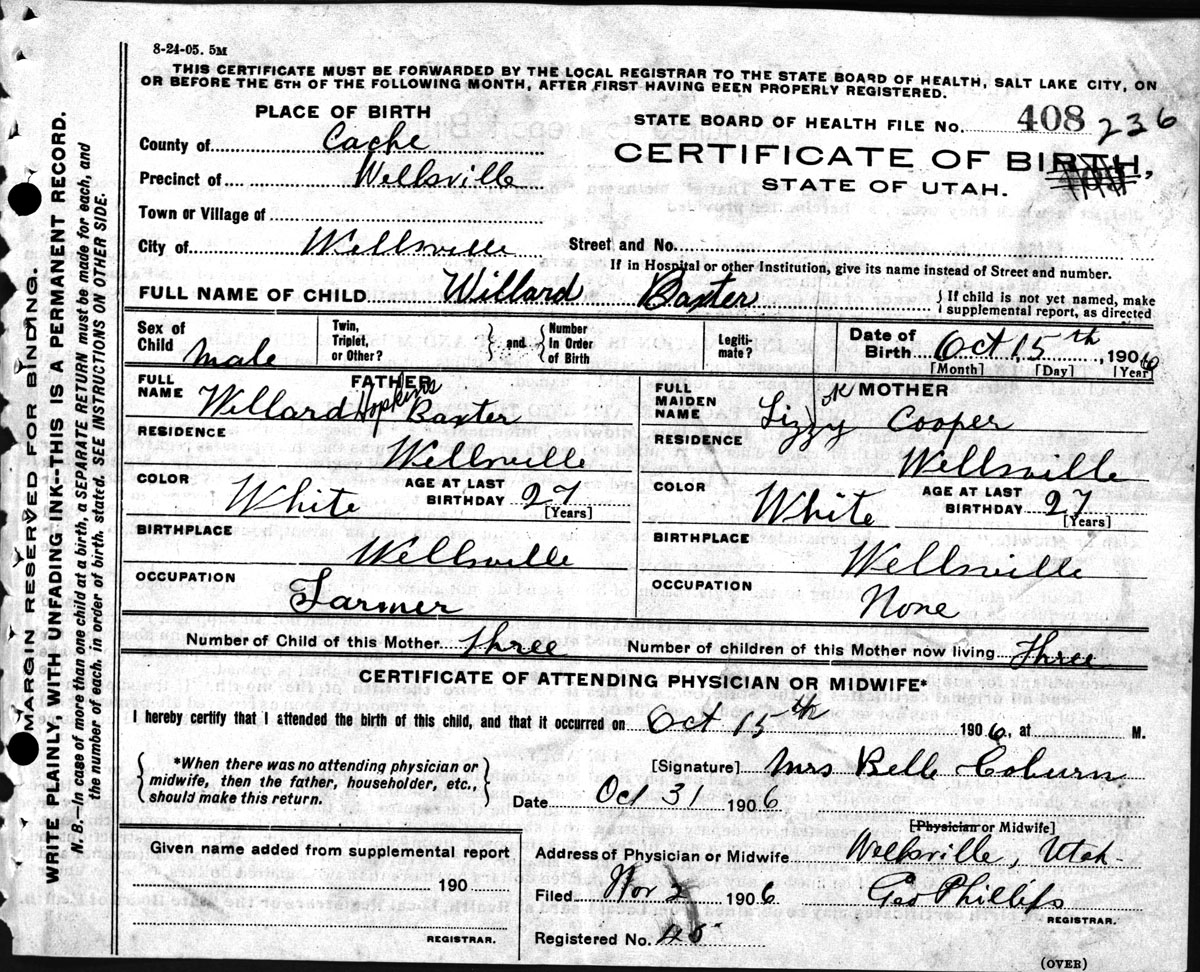 8-24-05. 5M
THIS CERTIFICATE MUST BE FORWARDED BY THE LOCAL REGISTRAR TO THE STATE BOARD OF HEALTH, SALT LAKE CITY, ON
OR BEFORE THE 5TH OF THE FOLLOWING MONTH, AFTER FIRST HAVING BEEN PROPERLY REGISTERED.
PLACE OF BIRTH
County of Cache
Precinct of Wellsville
Town or Village of
City of Wellsville
STATE BOARD OF HEALTH FILE No. 408 236
CERTIFICATE OF BIRTH,
STATE OF UTAH.
Street and No.
If in Hospital or other Institution, give its name instead of Street and number.
FULL NAME OF CHILD Willard Baxter { If child is not yet named, make supplemental report, as directed
Sex of Child male
Twin, Triplet, or Other? } and { Number In Order of Birth
Legitimate?
Date of Birth Oct 15th, 1906
[Month] [Day] [Year]
FATHER
FULL NAME Willard Hopkins Baxter
RESIDENCE Wellsville
COLOR White AGE AT LAST BIRTHDAY 27 [Years]
BIRTHPLACE Wellsville
OCCUPATION Farmer
MOTHER
FULL MAIDEN NAME Lizzy ok Cooper
RESIDENCE Wellsville
COLOR White AGE AT LAST BIRTHDAY 27 [Years]
BIRTHPLACE Wellsville
OCCUPATION None
Number of Child of this Mother three Number of children of this Mother now living Three
CERTIFICATE OF ATTENDING PHYSICIAN OR MIDWIFE*
I hereby certify that I attended the birth of this child, and that it occurred on Oct 15th 1906, at M.
*When there was no attending physician or
midwife, then the father, householder, etc.,
should make this return.
[Signature] Mrs Belle Coburn
Date Oct 31 1906
[Physician or Midwife]
Given name added from supplemental report
190
REGISTRAR.
Address of Physician or Midwife Wellsville, Utah
Filed Nov 2 1906 Geo Phillips
REGISTRAR.
Registered No.
(OVER)
MARGIN RESERVED FOR BINDING.
WRITE PLAINLY WITH UNFADING INK--THIS IS A PERMANENT RECORD.
N. B.—In case of more than one child at a birth, a SEPARATE RETURN must be made for each, and
the number of each, in order of birth, stated. SEE INSTRUCTIONS ON OTHER SIDE.